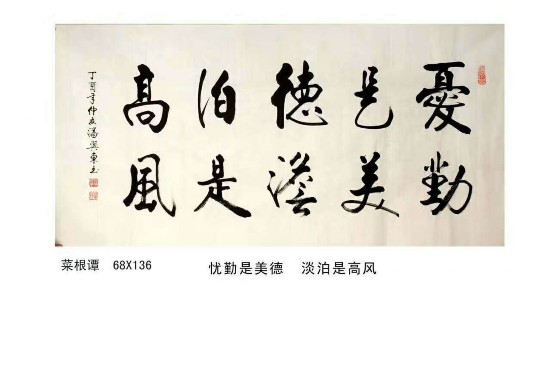 憂勤
是美
德淡
泊是
高風
丁酉年仲夏潘興東书
菜根谭 68X136
忧勤是美德 淡泊是高风